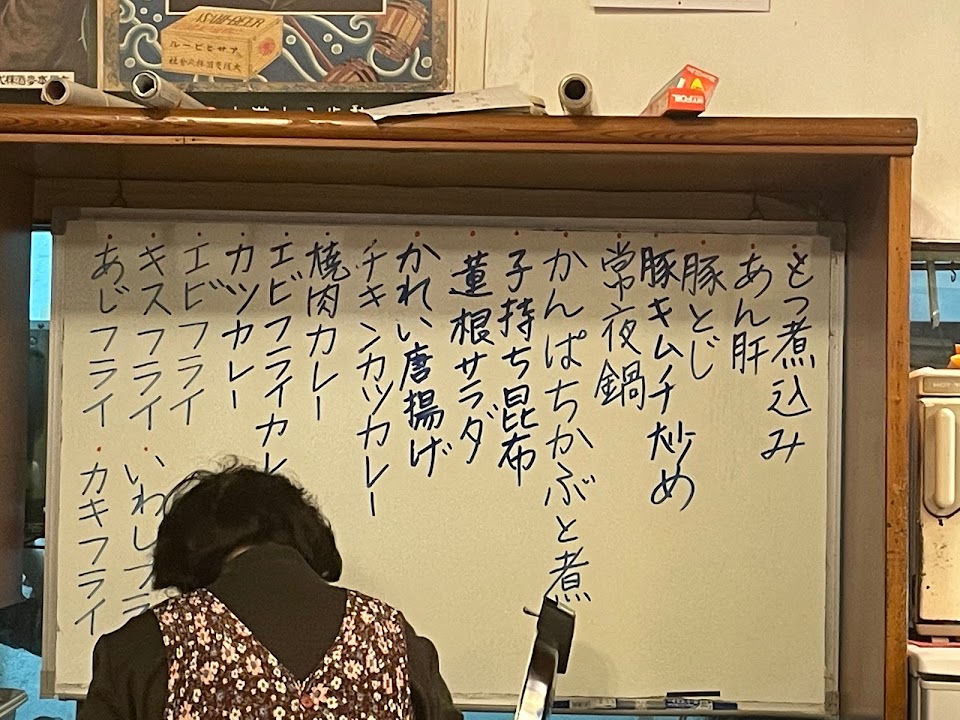 もつ煮込み
あん肝
豚とじ
豚キムチ炒め
常夜鍋
かんぱちかぶと煮
子持ち昆布
蓮根サラダ
かれい唐揚げ
チキンカツカレー
焼肉カレー
エビフライカレ
カツカレー
エビフライ
キスフライ
いわしフラ
あじフライ
カキフライ
ASAHI-BEER
アサヒビール